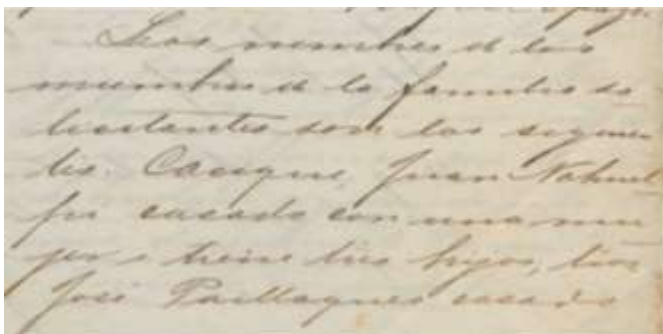 Los nombres de los
miembros de la familia so
licitantes son los siguien
tes. Cacique, Juan Nahuel
pi casado con una mu
jer i tiene tres hijos, tios
José Paillaqueo casado